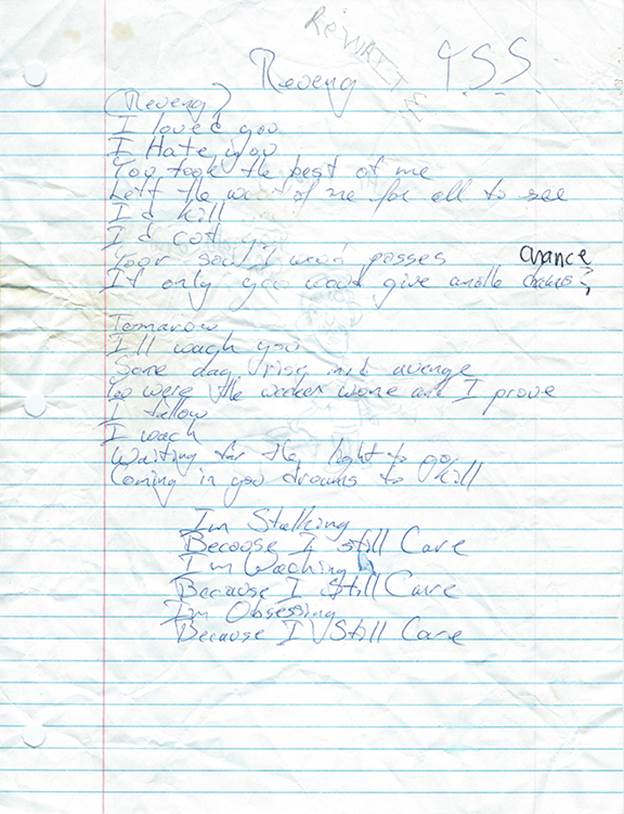 Re WRITE
Y.S.S.
Reveng
(Reveng)
I loved you
I Hate you
You took the best of me
Left the worst of me for all to see
I'd kill
I'd cut you
Your soul I wood posses
chance
If only you would give anothe
Tomarow
I'll wach you
Some day rise avenge
You were the weeker wone and I prove
I follow
I wach
Waiting for the light to go
Coming in you dreams to kill
Im Stalking
Becouse I still Care
I'm Waching
Because I Still Care
I'm Obsessing
Because I Still Care